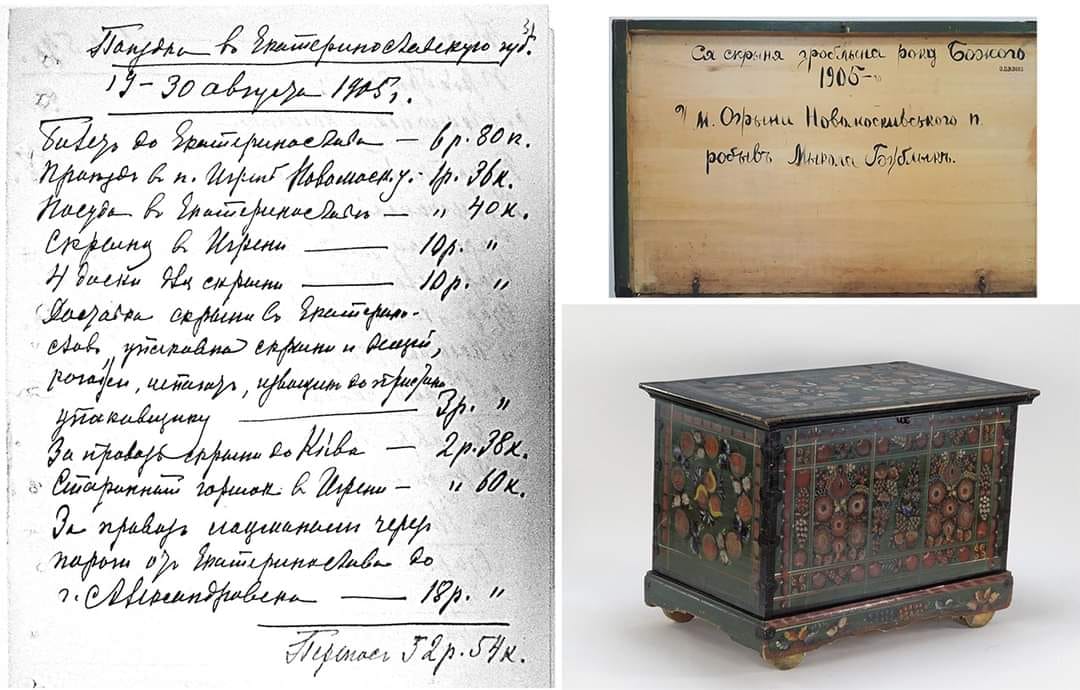 Поездка в Екатеринославскую губ.
19–30 августа 1905 г.
Билет до Екатеринослава — 6 р. 80 к.
Проезд в п. Игрень Новомоск. у. – 1р. 36 к.
Посуда в Екатеринославе — " 40 к.
Скрыня в Игрени — 10р. "
4 доски для скрыни — 10р. "
Доставка скрыни в Екатерино-
слав, упаковка скрыни и вещей,
извощик до
упаковщику — 3р. "
За провоз скрыни до Кіева — 2 р. 38 к.
Старинный горшок в Игрени — " 60 к.
За провоз лоцманам через
пороги от Екатеринослава до
г. Александровска — 18р. "
Перенос 52 р. 54 к.
Ся скрыня зроблына року Божого
1905
м. Огрыни Новомоскивського п.
робывъ Мыкола